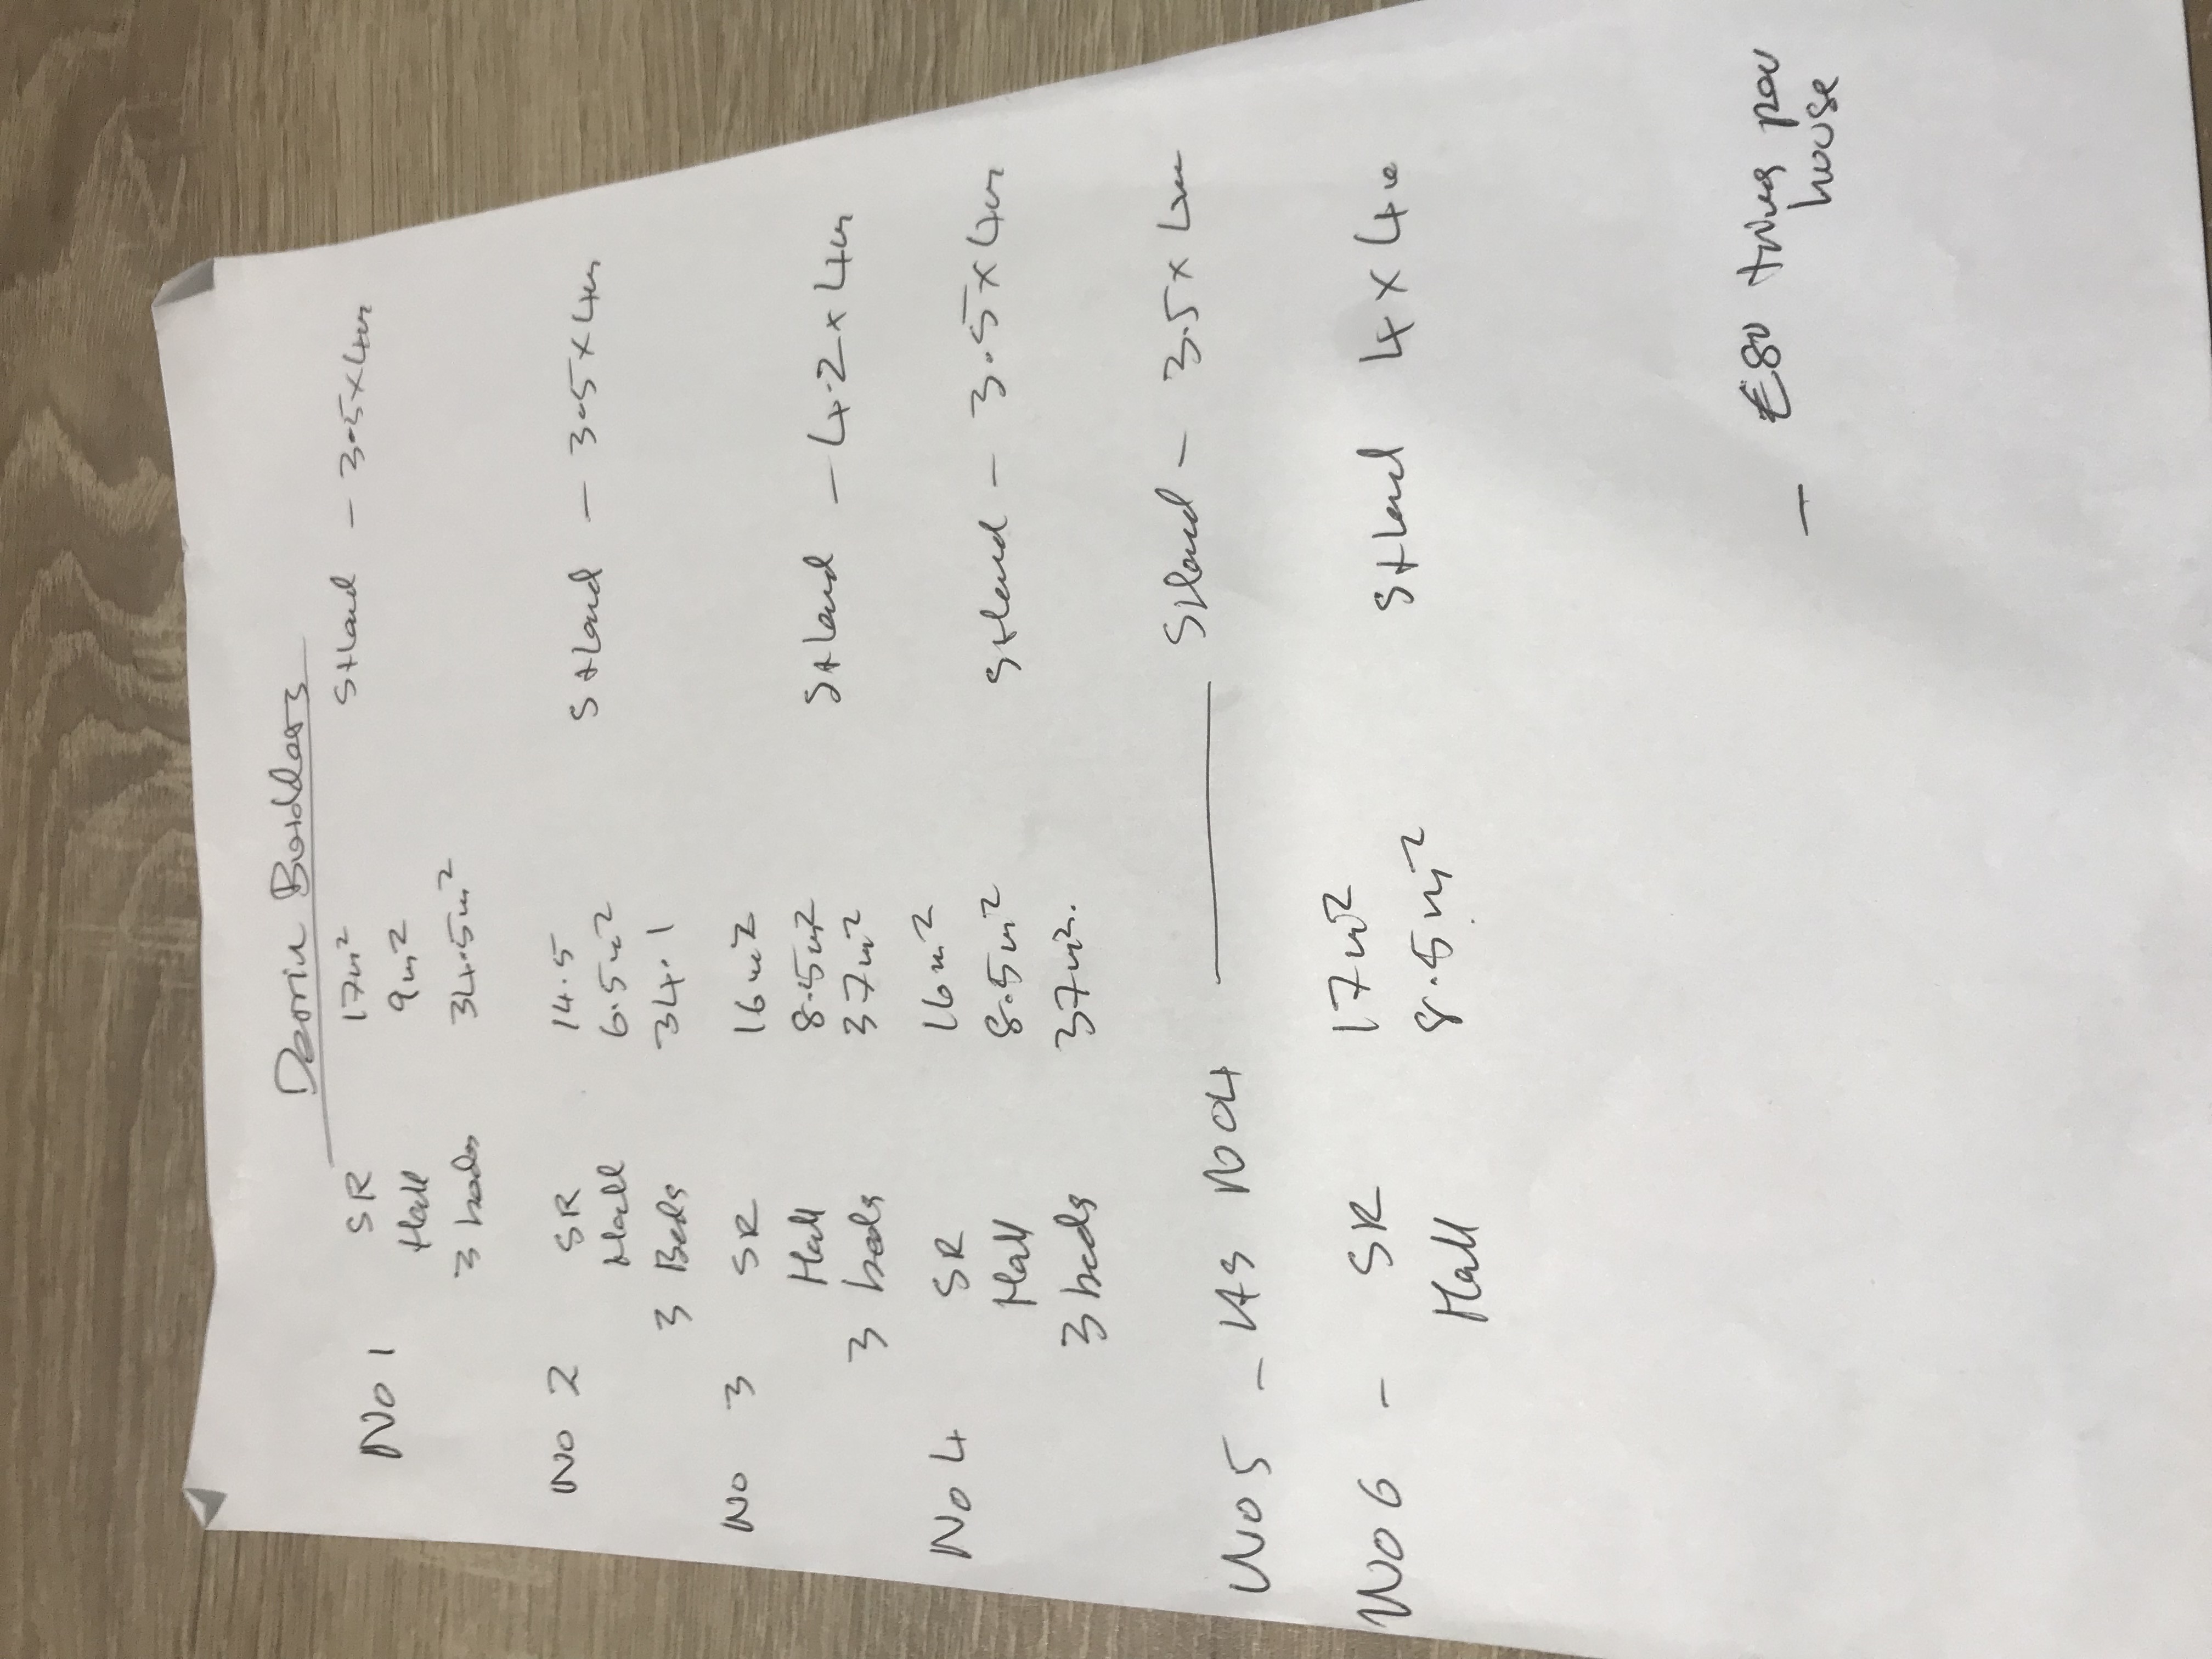 Dorrin Builders
No 1 SR 17m² St+Land - 3.5x4m
Hall 9m²
3 beds 34.5m²
No 2 SR 14.5 St+Land - 3.5x4m
Hall 6.5m²
3 Beds 34.1
No 3 SR 16m2
Hall 8.5m2 St+Land - 4.2x4m
3 beds 37m2
No 4 SR 16m2
Hall 8.5m2 St+Land - 3.5x4m
3 beds 37m2.
No 5 - As No 4 St+Land - 3.5x4m
No 6 - SR 17m2 St+Land 4x4m
Hall 8.5m2
- €80
house